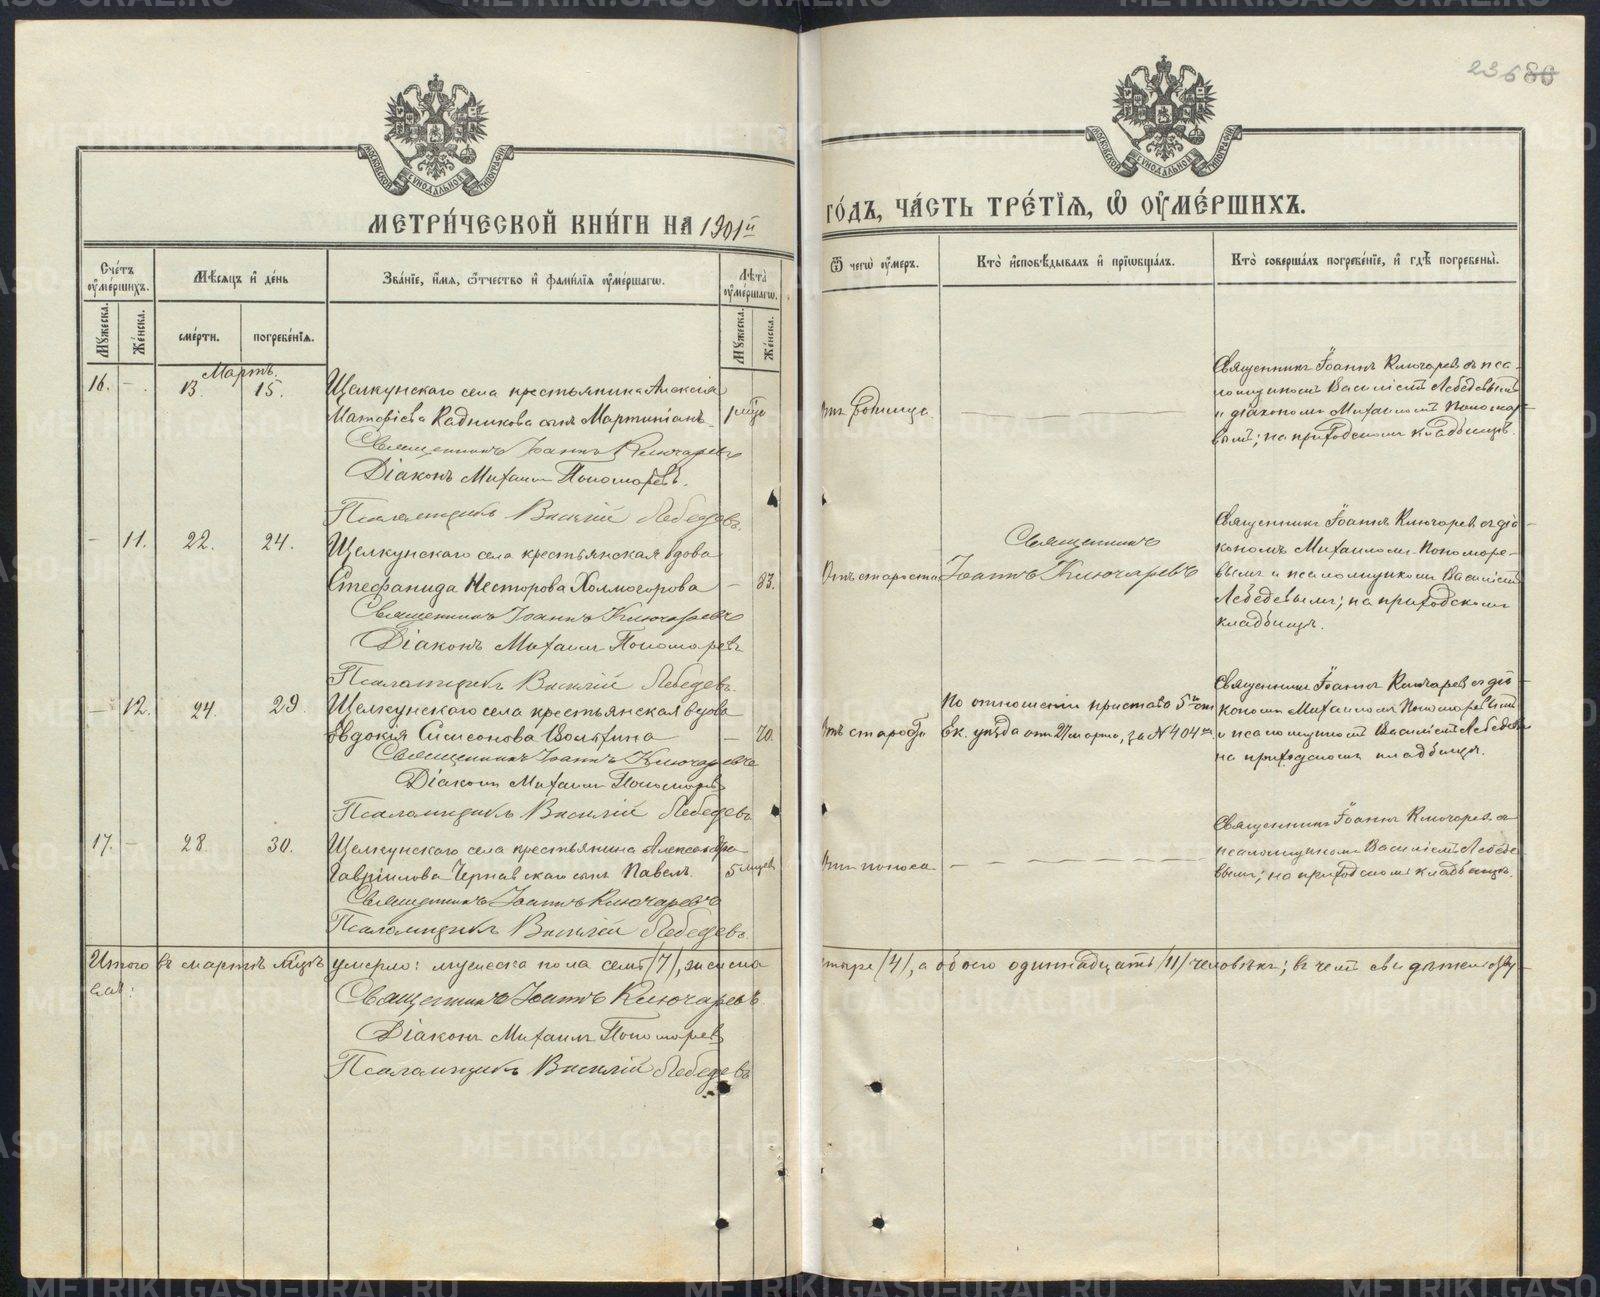 23686
МЕТРИ́ЧЕСКОЙ КНИ́ГИ НА 1901й
ГО́ДЪ, ЧА́СТЬ ТРЕ́ТІЯ, Ѡ҆ ОУ҆МЕ́РШИХЪ.
Сче́тъ оу҆ме́ршихъ.
Мѣ́сяцъ и҆ де́нь
Зва́нїе, и҆́мя, ѻ҆́тчество и҆ фами́лїя оу҆ме́ршагѡ.
Лѣ́та оу҆ме́ршагѡ.
Мꙋ́жеска.
Же́нска.
сме́рти.
погребе́нїя.
Мꙋ́жеска.
Же́нска.
Ѿ чегѡ̀ оу҆́меръ.
Кто̀ и҆сповѣ́дывалъ и҆ прїѡбща́лъ.
Кто̀ соверша́лъ погребе́нїе, и҆ гдѣ̀ погребены̀.
Мартъ.
16. - 13. 15.
Щелкунскаго села крестьянина Алексія
Матѳіева Кадникова сынъ Мартиніанъ.
1 мѣс
Священникъ Іоаннъ Ключаревъ
Діаконъ Михаилъ Пономаревъ.
Псаломщикъ Василій Лебедевъ.
родимца
Священникъ Іоаннъ Ключаревъ съ пса-
ломщикомъ Василіемъ Лебедевымъ
и діакономъ Михаиломъ Пономар-
вымъ; на приходскомъ кладбищѣ.
- 11. 22. 24.
Щелкунскаго села крестьянская вдова
Стефанида Несторова Холмогорова - 83.
Священникъ Іоаннъ Ключаревъ
Діаконъ Михаилъ Пономаревъ
Псаломщикъ Василій Лебедевъ.
Отъ старости
Священникъ
Іоаннъ Ключаревъ
Священникъ Іоаннъ Ключаревъ съ діа-
кономъ Михаиломъ Пономаре-
вымъ и псаломщикомъ Василіемъ
Лебедевымъ; на приходскомъ
кладбищѣ.
- 12. 24. 29.
Щелкунскаго села крестьянская вдова
Евдокія Симеонова - 70.
Священникъ Іоаннъ Ключаревъ
Діаконъ Михаилъ Пономаревъ
Псаломщикъ Василій Лебедевъ
старости
По отношенію пристава 5го ст
Ек. уѣзда отъ 27 марта, за № 404мъ
Священникъ Іоаннъ Ключаревъ съ діа-
кономъ Михаиломъ Пономаревымъ
и псаломщикомъ Василіемъ Лебедев
на приходскомъ кладбищѣ.
17. - 28. 30.
Щелкунскаго села крестьянина Александра
Гавріилова Чернавскаго сынъ Павелъ. 5 мѣсяц
Священникъ Іоаннъ Ключаревъ
Псаломщикъ Василій Лебедевъ.
поноса
Священникъ Іоаннъ Ключаревъ съ
псаломщикомъ Василіемъ Лебеде-
вымъ; на приходскомъ кладбищѣ.
Итого въ мартѣ мѣсяцѣ умерло: мужеска пола семь /7/, женска
четыре /4/, а обоего одиннадцать /11/ человѣкъ; въ чемъ свидѣтельству-
емъ:
Священникъ Іоаннъ Ключаревъ
Діаконъ Михаилъ Пономаревъ
Псаломщикъ Василій Лебедевъ
METRIKI.GASO-URAL.RU